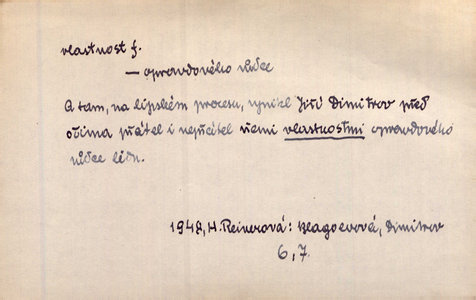 vlastnost f.
— opravdového vůdce
A tam, na lipském procesu, vynikl Jiří Dimitrov před
očima přátel i nepřátel všemi vlastnostmi opravdového
vůdce lidu.
1948, H. Reinerová: Blagoevová, Dimitrov
6, 7.